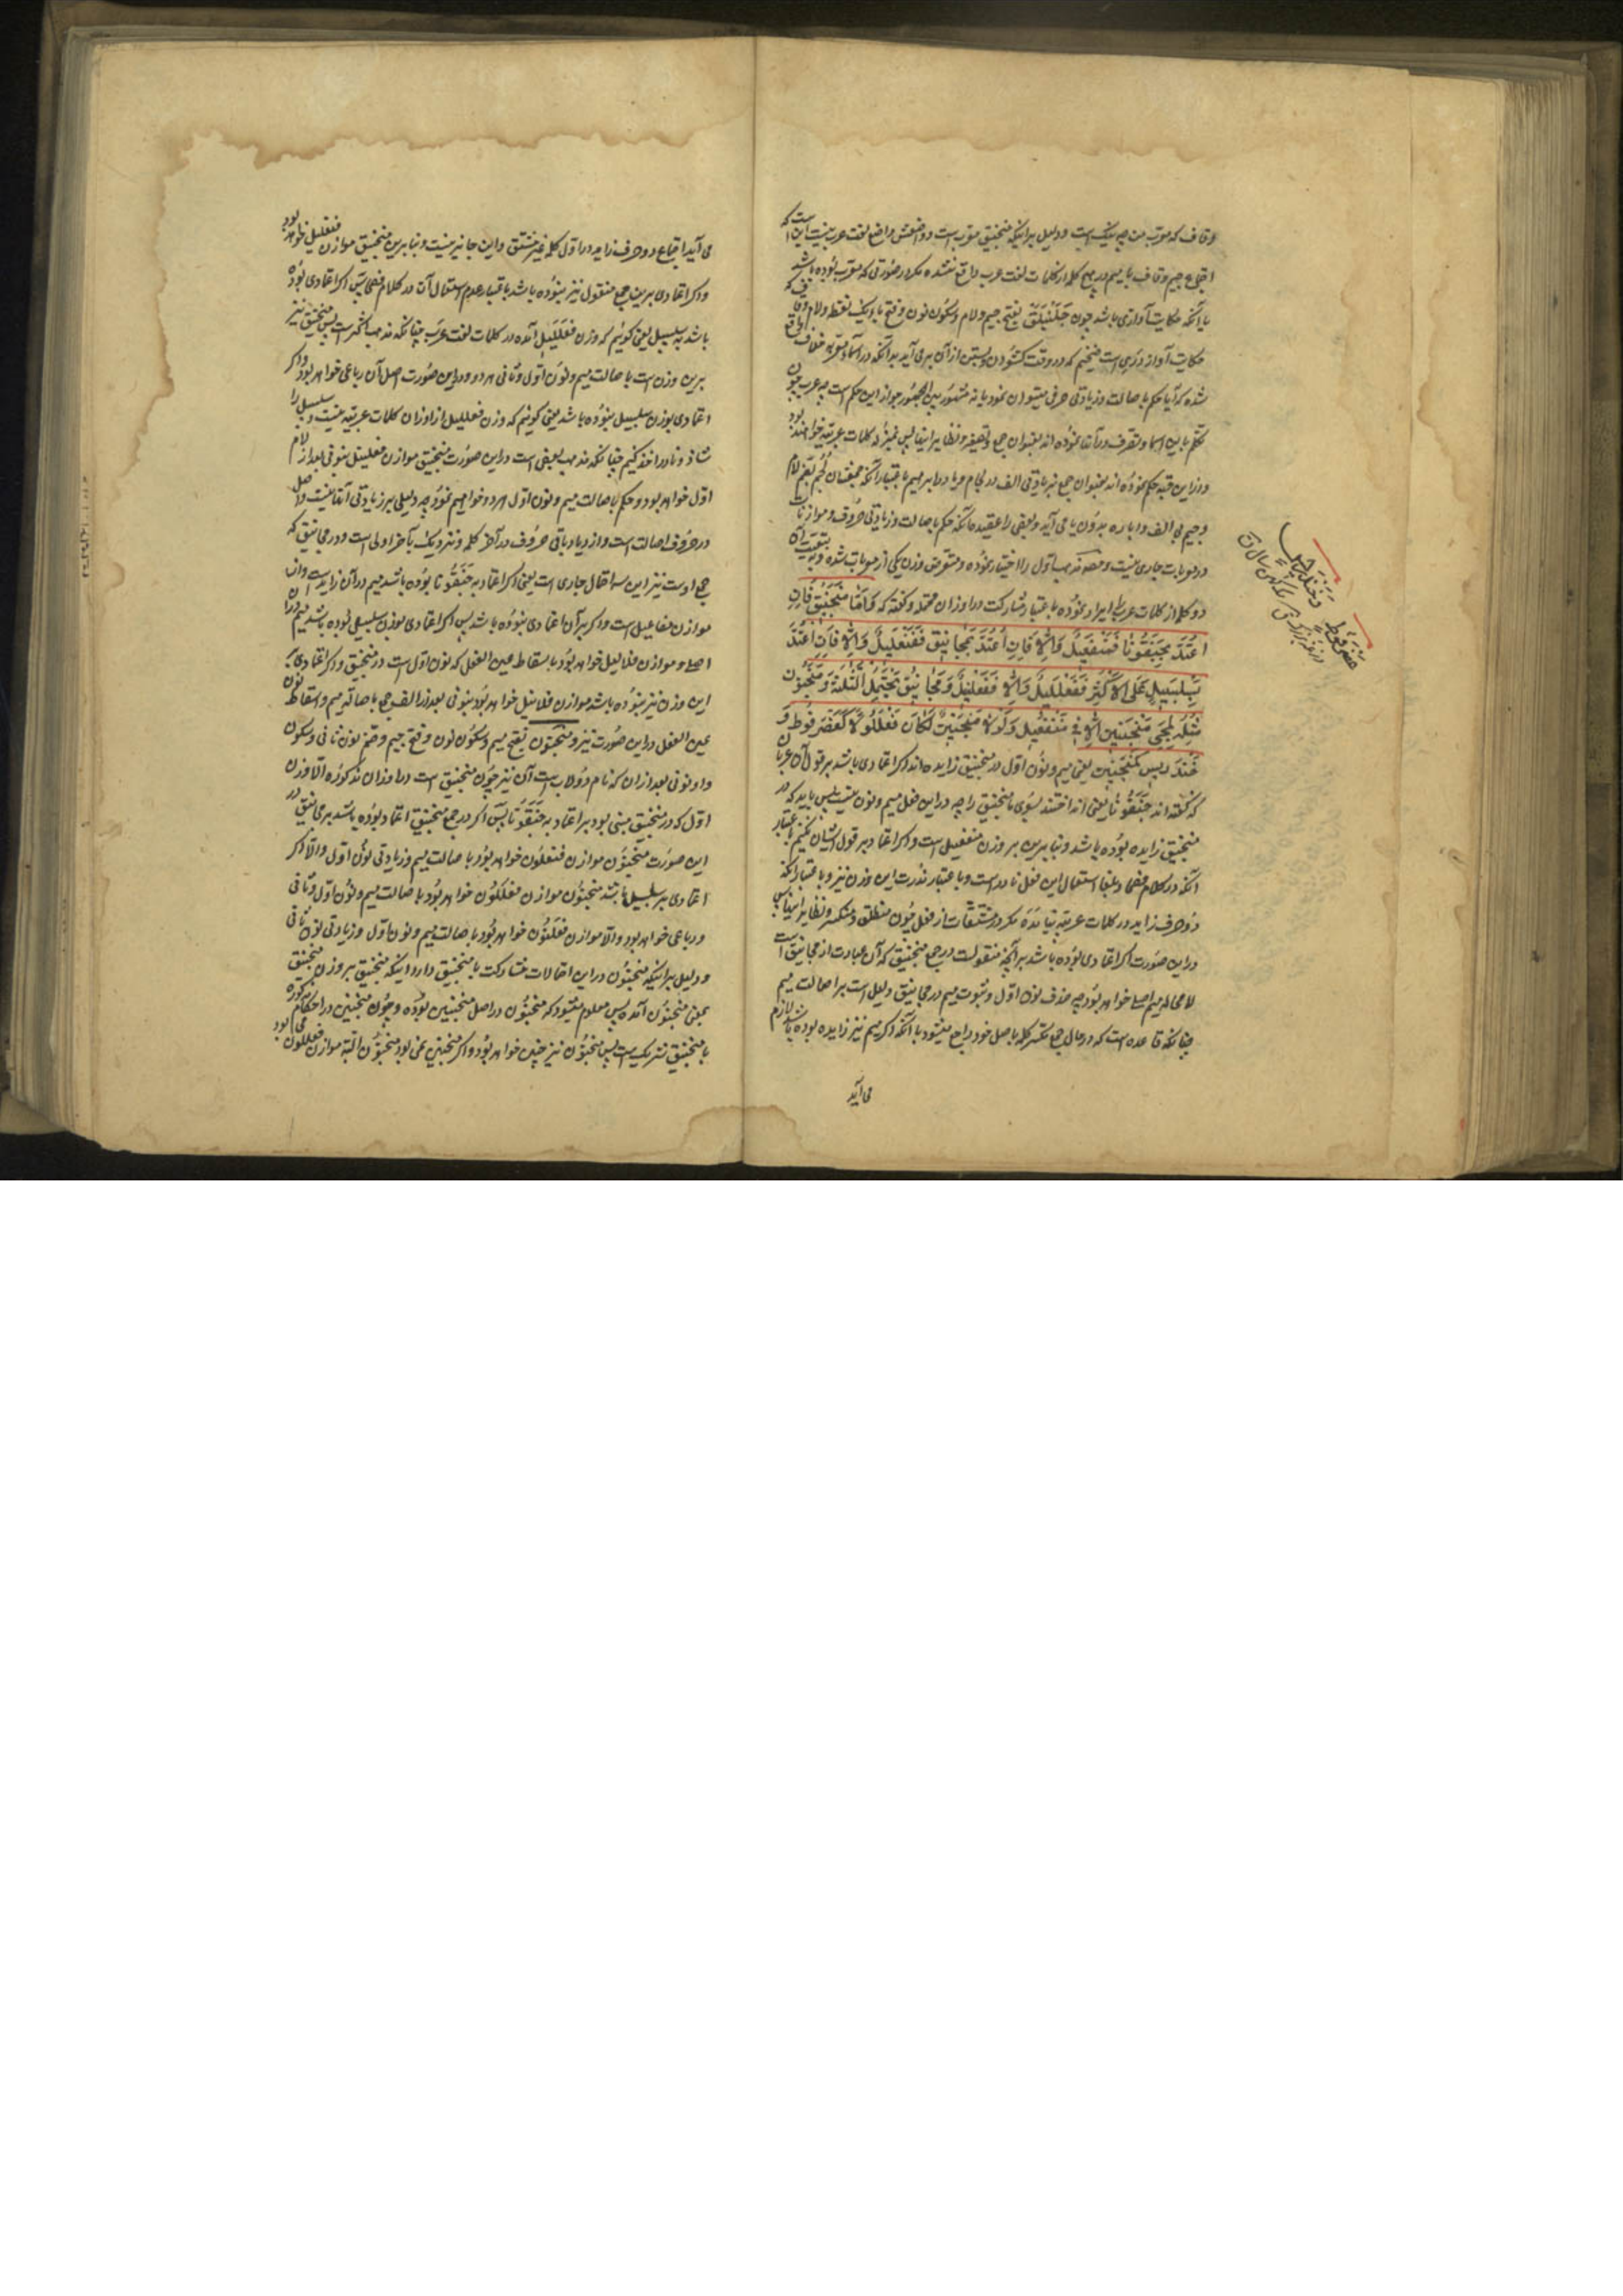 وقاف که معرب من چه نیک است و دلیل بر اینکه منجنیق معرب است و واضعش واضع لغت عرب نیست این است که
اجتماع جیم و قاف با میم در هیچ کلمه از کلمات لغت عرب واقع نشده مگر در صورتی که معرب بوده باشد
یا آنکه حکایت آوازی باشد چون جَلَنْبَلَقْ بفتح جیم و لام و سکون نون و فتح باء یک نقطه و لام و قاف که
حکایت آواز دری است ضخیم که در وقت گشودن و بستن از آن برمی آید بدانکه در اسماء معربه خلاف واقع
شده که آیا حکم باصالت و زیادتی حرفی میتوان نمود یا نه مشهور بین الجمهور جواز این حکم است چه عرب چون
تکلم باین اسما و تصرف در آنها نموده اند بعنوان جمع و تصغیر و نظایر اینها پس بمنزله کلمات عربیه خواهند بود
و از این قبیل حکم نموده اند بعنوان جمع بزیادتی الف در لجام و یا در ابراهیم باعتبار آنکه جمعشان لُجُم بضم لام
و جیم بی الف و اباره بدون یا می آید و بعضی را عقیده آنکه حکم باصالت و زیادتی حروف و موازنات
در معربات جاری نیست و مصنف مذهب اول را اختیار نموده و متعرض وزن یکی از معربات شده و بتبعیت آن
دو کلمه از کلمات عرب را ایراد نموده باعتبار مشارکت در اوزان محتمله و گفته که وَاَمّا مَنْجَنِیْقٌ فَاِنِ
اعْتُدَّ بِجَنَقُوْنَا فَمَنْفَعِیْلٌ وَاِلّا فَاِنِ اعْتُدَّ بِمَجانِیْقَ فَفَنْعَلِیْلٌ وَاِلّا فَاِنِ اعْتُدَّ
بِسَلْسَبِیْلٍ عَلَی الْاَکْثَرِ فَفَعْلَلِیْلٌ وَاِلّا فَفَعْلَنِیْلٌ وَمَجانِیْقُ یَحْتَمِلُ الثَّلٰثَةَ وَمَنْجَنُوْنٌ
مِثْلُهُ لِمَجِئِ مَنْجَنِیْنٍ اِلّا فِی مَنْفَعِیْلٍ وَلَوْلا مَنْجَنِیْنٌ لَکانَ فَعْلَلُوْلاً کَعَضْرَفُوْطٍ وَ
خَنْدَرِیْسٌ کَمَنْجَنِیْنٍ یعنی میم و نون اول در منجنیق زایده اند اگر اعتمادی باشد بر قول آن عربان
که گفته اند جَنَقُوْنَا یعنی انداختند بسوی ما منجنیق را چه در این فعل میم و نون نیست پس باید که در
منجنیق زایده بوده باشد و بنا برین بر وزن منفعیل است و اگر اعتماد بر قول ایشان نکنیم باعتبار
آنکه در کلام فصحا و بلغا استعمال این فعل نادر است و باعتبار ندرت این وزن نیز و باعتبار آنکه
دو حرف زاید در کلمات عربیه نیامده مگر در مشتقات از فعل چون منطلق و منکسر و نظایر اینها پس
در این صورت اگر اعتمادی بوده باشد بر آنچه منقولست در جمع منجنیق که آن عبارت از مجانیق است
لا محاله میم اصلی خواهد بود چه حذف نون اول و ثبوت میم در مجانیق دلیل است بر اصالت میم
چنانکه قاعده است که در حال جمع تکسیر کلمه باصل خود راجع میشود با آنکه اگر میم نیز زایده بوده باشد لازم
می آید
عضرفوط
و خندریس
می آید اجتماع دو حرف زاید در اول کلمه غیر مشتق و این جایز نیست و بنا برین منجنیق موازن فنعلیل خواهد بود
و اگر اعتمادی برین جمع منقول نیز نبوده باشد باعتبار عدم استعمال آن در کلام فصحا پس اگر اعتمادی بوده
باشد به سلسبیل یعنی گوئیم که وزن فَعْلَلَیْل آمده در کلمات لغت عرب چنانکه مذهب اکثر است پس منجنیق نیز
برین وزن است باصالت میم و نون اول و ثانی هر دو و در این صورت اصل آن رباعی خواهد بود و اگر
اعتمادی بوزن سلسبیل نبوده باشد یعنی گوئیم که وزن فعللیل از اوزان کلمات عربیه نیست و سلسبیل را
شاذ و نادر اخذ کنیم چنانکه مذهب بعضی است در این صورت منجنیق موازن فعلنیل بنونی بعد از لام
اول خواهد بود و حکم باصالت میم و نون اول هر دو خواهیم نمود چه دلیلی بر زیادتی آنها نیست و اصل
در حروف اصالت است و ازدیاد باقی حروف در آخر کلمه و نزدیک بآخر اولی است و در مجانیق که
جمع اوست نیز این سه احتمال جاری است یعنی اگر اعتماد به جَنَقُوْنَا بوده باشد میم در آن زاید است و آن
موازن مفاعیل است و اگر بر آن اعتمادی نبوده باشد پس اگر اعتمادی بوزن سلسبیل بوده باشد میم در آن
اصلی و موازن فلالیل خواهد بود باسقاط عین الفعل که نون اول است در منجنیق و اگر اعتمادی به
این وزن نیز نبوده باشد موازن فلانیل خواهد بود بنونی بعد از الف جمع باصالة میم و اسقاط نون
عین الفعل در این صورت نیز و منجنون بفتح میم و سکون نون و فتح جیم و ضم نون ثانی و سکون
واو و نونی بعد از آن که نام دولاب است آن نیز چون منجنیق است در اوزان مذکوره الا وزن
اول که در منجنیق مبنی بود بر اعتماد به جَنَقُوْنَا پس اگر در جمع منجنیق اعتماد بوده باشد بر مجانیق در
این صورت منجنون موازن فنعلون خواهد بود باصالت میم و زیادتی نون اول و الا اگر
اعتمادی بر سلسبیل باشد منجنون موازن فعللون خواهد بود باصالت میم و نون اول و ثانی
و رباعی خواهد بود و الا موازن فعلنون خواهد بود باصالت میم و نون اول و زیادتی نون ثانی
و دلیل بر اینکه منجنون در این احتمالات مشارکت با منجنیق دارد اینکه منجنیق بر وزن منجنیق
بمعنی منجنون آمده پس معلوم میشود که منجنون در اصل منجنین بوده و چون منجنین در احکام مذکوره
با منجنیق شریک است پس منجنون نیز چنین خواهد بود و اگر منجنین نمی بود منجنون البته موازن فعللول می بود